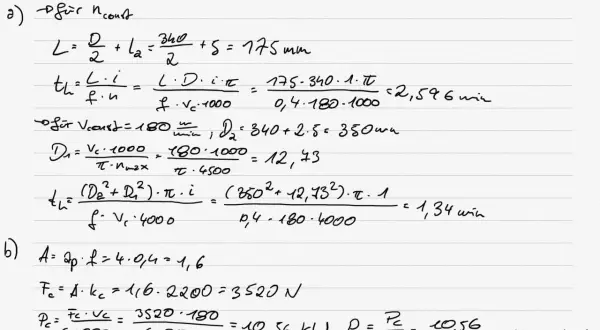 a) → für n const
L = D/2 + la = 340/2 + 5 = 175 mm
th = L · i / f · n = L · D · i · π / f · vc · 1000 = 175 · 340 · 1 · π / 0,4 · 180 · 1000 = 2,596 min
→ für vconst = 180 m/min, D2 = 340 + 2 · 5 = 350 mm
D1 = vc · 1000 / π · nmax = 180 · 1000 / π · 4500 = 12,73
th = (D2² + D1²) · π · i / f · vc · 4000 = (350² + 12,73²) · π · 1 / 0,4 · 180 · 4000 = 1,34 min
b) A = ap · f = 4 · 0,4 = 1,6
Fc = A · kc = 1,6 · 2200 = 3520 N
Pc = Fc · vc = 3520 · 180 = 10,56 kW P = Pc = 10,56